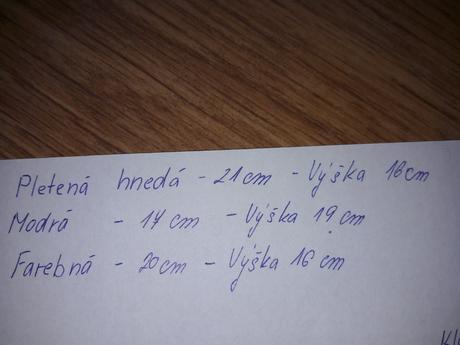 Pletená hnedá - 21cm - Výška 18cm
Modrá - 17cm - Výška 19cm
Farebná - 20cm - Výška 16cm